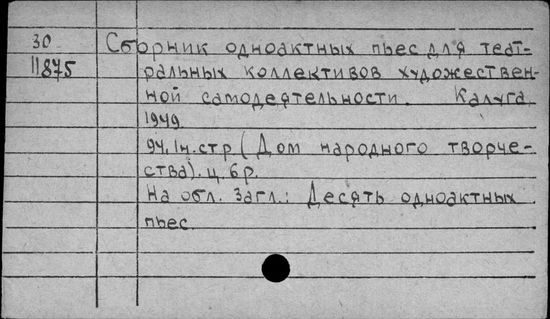 30 Сборник одноактных пьес для теат-
11875 ральных коллективов художествен-
ной самодеятельности. Калуга
1949
94, 1н.стр. (Дом народного творче-
ства). ц. 6 р.
На обл. загл.: Десять одноактных
пьес